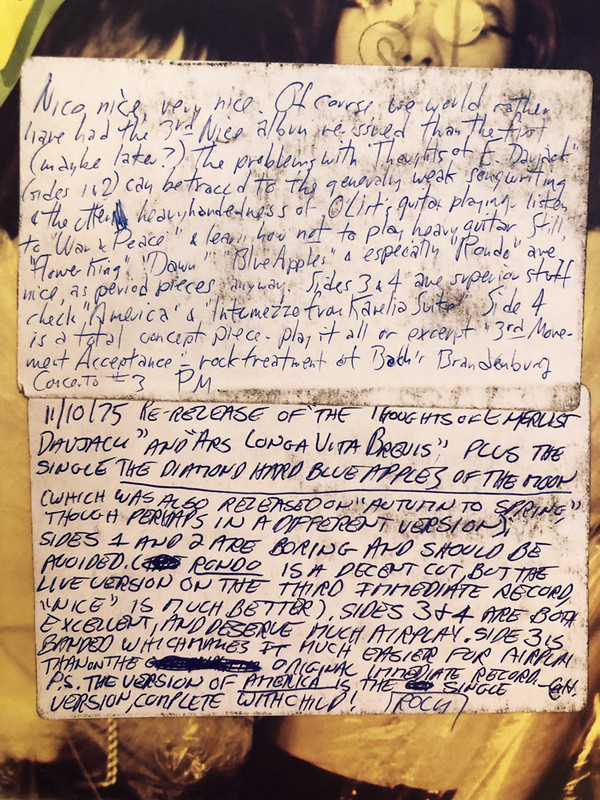 Nice, nice, very nice. Of course we would rather
have had the 3rd Nice album re-issued than the first
(maybe later?) The problems with "Thoughts of E. Davjack"
(sides 1&2) can be traced to the generally weak songwriting
& the utter heavyhandedness of O'List's guitar playing. listen
to "War & Peace" & learn how not to play heavy guitar. Still,
"Flower King" "Dawn" "Blue Apples" & especially "Rondo" are
nice, as period pieces anyway. Sides 3&4 are superior stuff
check "America" & "Intermezzo from Karelia Suite". Side 4
is a total concept piece - play it all or excerpt "3rd Move-
ment Acceptance" - rock treatment of Bach's Brandenburg
Concerto #3 PM
11/10/75 RE-RELEASE OF "THE THOUGHTS OF EMERLIST
DAVJACK" AND "ARS LONGA VITA BREVIS", PLUS THE
SINGLE THE DIAMOND HARD BLUE APPLES OF THE MOON
(WHICH WAS ALSO RELEASED ON "AUTUMN TO SPRING,"
THOUGH PERHAPS IN A DIFFERENT VERSION).
SIDES 1 AND 2 ARE BORING AND SHOULD BE
AVOIDED. ( RONDO IS A DECENT CUT, BUT THE
LIVE VERSION ON THE THIRD IMMEDIATE RECORD,
"NICE" IS MUCH BETTER). SIDES 3&4 ARE BOTH
EXCELLENT, AND DESERVE MUCH AIRPLAY. SIDE 3 IS
BANDED WHICH MAKES IT MUCH EASIER FOR AIRPLAY
THAN ON THE ORIGINAL IMMEDIATE RECORD.
P.S. THE VERSION OF AMERICA IS THE SINGLE
VERSION, COMPLETE WITH CHILD! (ROCK)